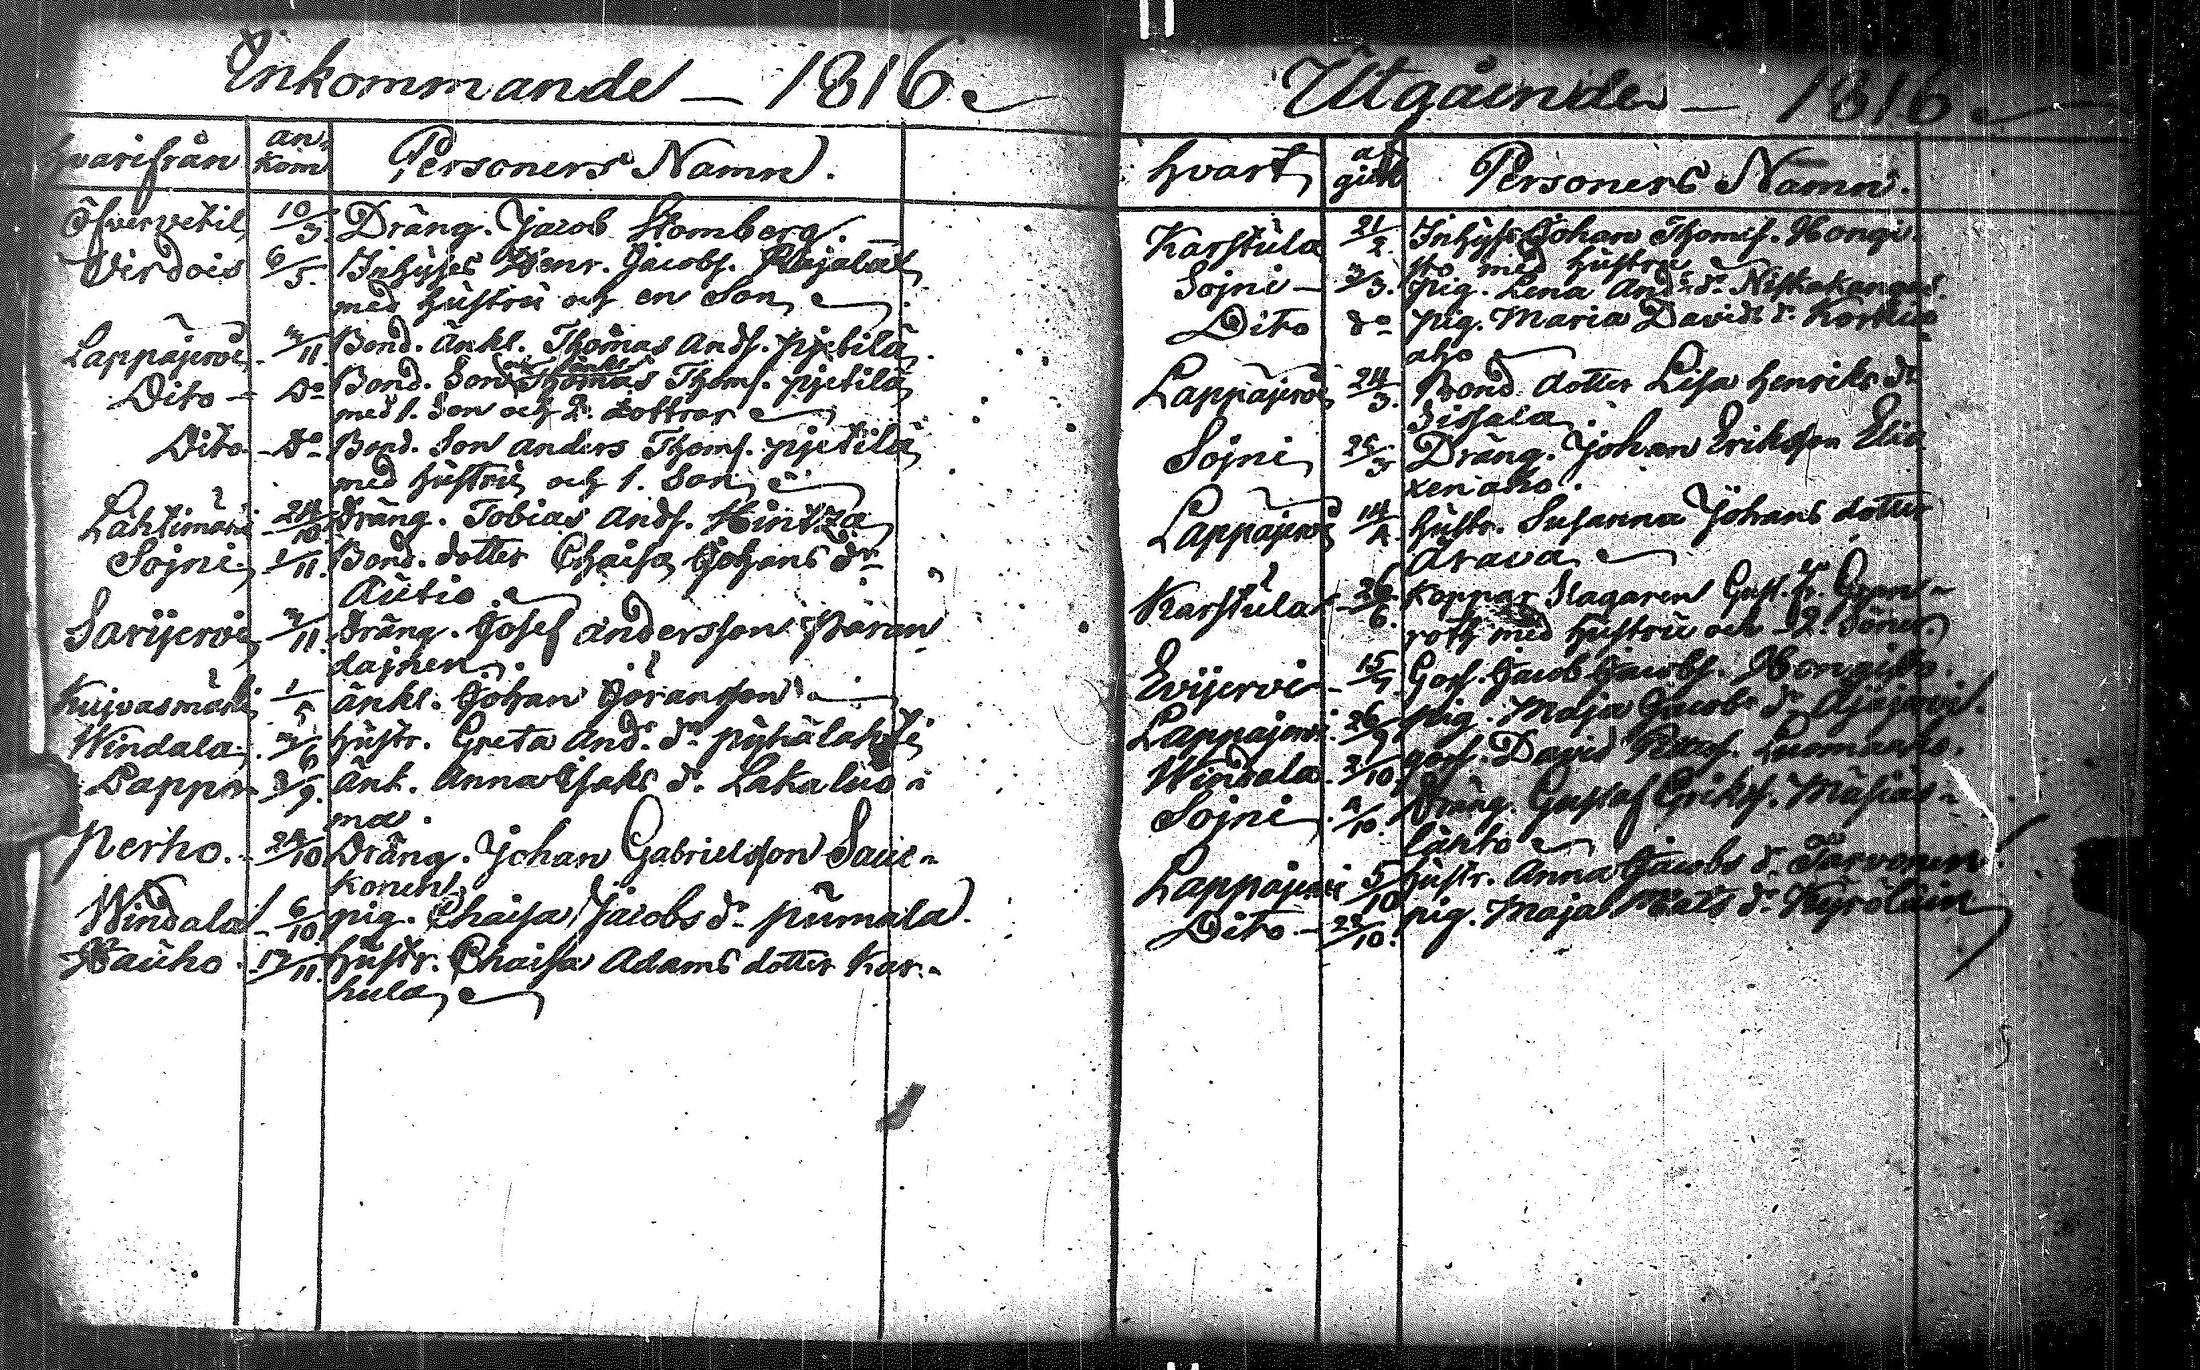 Inkommande — 1816.
hvarifrån an- kom Personers Namn.
Öfvervetil 10/3 Dräng. Jacob Stomberg.
Virdois 6/5 Inhyses Henr. Jacobs. Rajala
med hustru och en Son
Lappajervi 3/11 Bond. Änkl. Thomas Ands. pjetilä
Dito - do Bond. Son och änkl. Thomas Thoms. pjetilä
med 1. Son och 2. dottrar
Dito - do Bond. Son Anders Thoms. pjetilä
med hustru och 1. Son
Lahtimäki 24/10 Dräng. Tobias Ands. Hintza
Sojni 1/11 Bond. dotter Chaisa Johans dr
Autio
Sarijervi 3/11 Dräng. Josef Andersson Päran
dajnen.
Kuivasmäki 1/5 änkl. Johan Göransson
Windala. hustr. Greta And. dr pyhälahti
Lappo 8/9. Änk. Anna Isaks dr Lakaluo-
ma.
Perho. 24/10 Dräng. Johan Gabrielsson Saue-
konen
Windala - 6/10 pig. Chaisa Jacobs dr pumala.
Kauho. 17/11. hustr. Chaisa Adams dotter Kar-
hula
Utgående — 1816
hvart af gick Personers Namn.
Karstula 21/2. Inhyses Johan Thomes. Hongi-
sto med hustru
Sojni - 3/3. pig. Lena And. dr Niskakangas.
Dito do pig. Maria Davids dr Korkia-
aho
Lappajervi 24/3. Bond dotter Lisa Henriks dr
Sissala
Sojni 25/3 Dräng. Johan Eriksson Elia-
xen aho.
Lappajervi 14/4. hustr. Susanna Johans dotter
Arava
Karstula - 26/6. Kopparslagaren Gust. Gran-
roth med hustru och 2. Söner.
Evijervi - 15/9 Goss. Jacob Jacobs. Hongisto.
Lappajervi. 26/9 pig. Maja Jacobs dr Äjäjervi.
Windala. 2/10. goss. David Luomaaho.
Sojni 4/10. Dräng. Gustaf Eriks. Mäsiäs-
lahto
Lappajervi 5/10 hustr. Anna Jacobs dr Tarvonen
Dito - 28/10. pig. Maja Mats dr Kyröläin